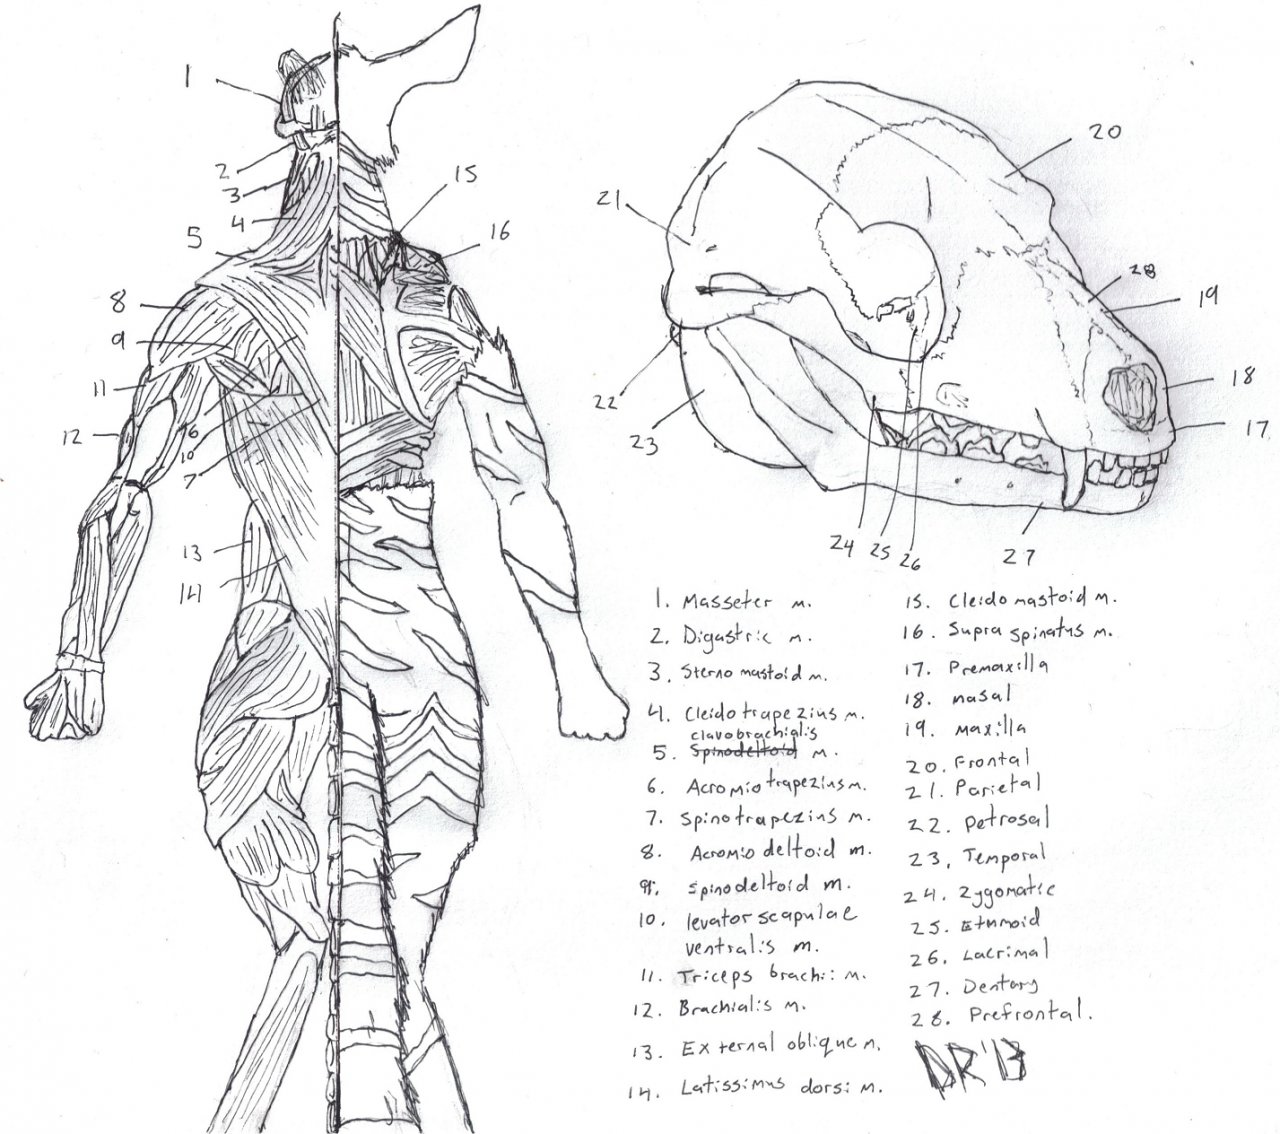 1
2
3
4
5
8
9
11
12
16
10
7
13
14
15
16
20
21
28
19
18
17
22
23
24
25
26
27
1. Masseter m.
2. Digastric m.
3. Sterno mastoid m.
4. Cleido trapezius m.
clavobrachialis
5. Spinodeltoid m.
6. Acromiotrapezius m.
7. Spinotrapezius m.
8. Acromio deltoid m.
9. spinodeltoid m.
10. levator scapulae
ventralis m.
11. Triceps brachii m.
12. Brachialis m.
13. External oblique m.
14. Latissimus dorsi m.
15. Cleidomastoid m.
16. Supra spinatus m.
17. Premaxilla
18. nasal
19. maxilla
20. Frontal
21. Parietal
22. Petrosal
23. Temporal
24. Zygomatic
25. Ethmoid
26. Lacrimal
27. Dentary
28. Prefrontal.
DR'13